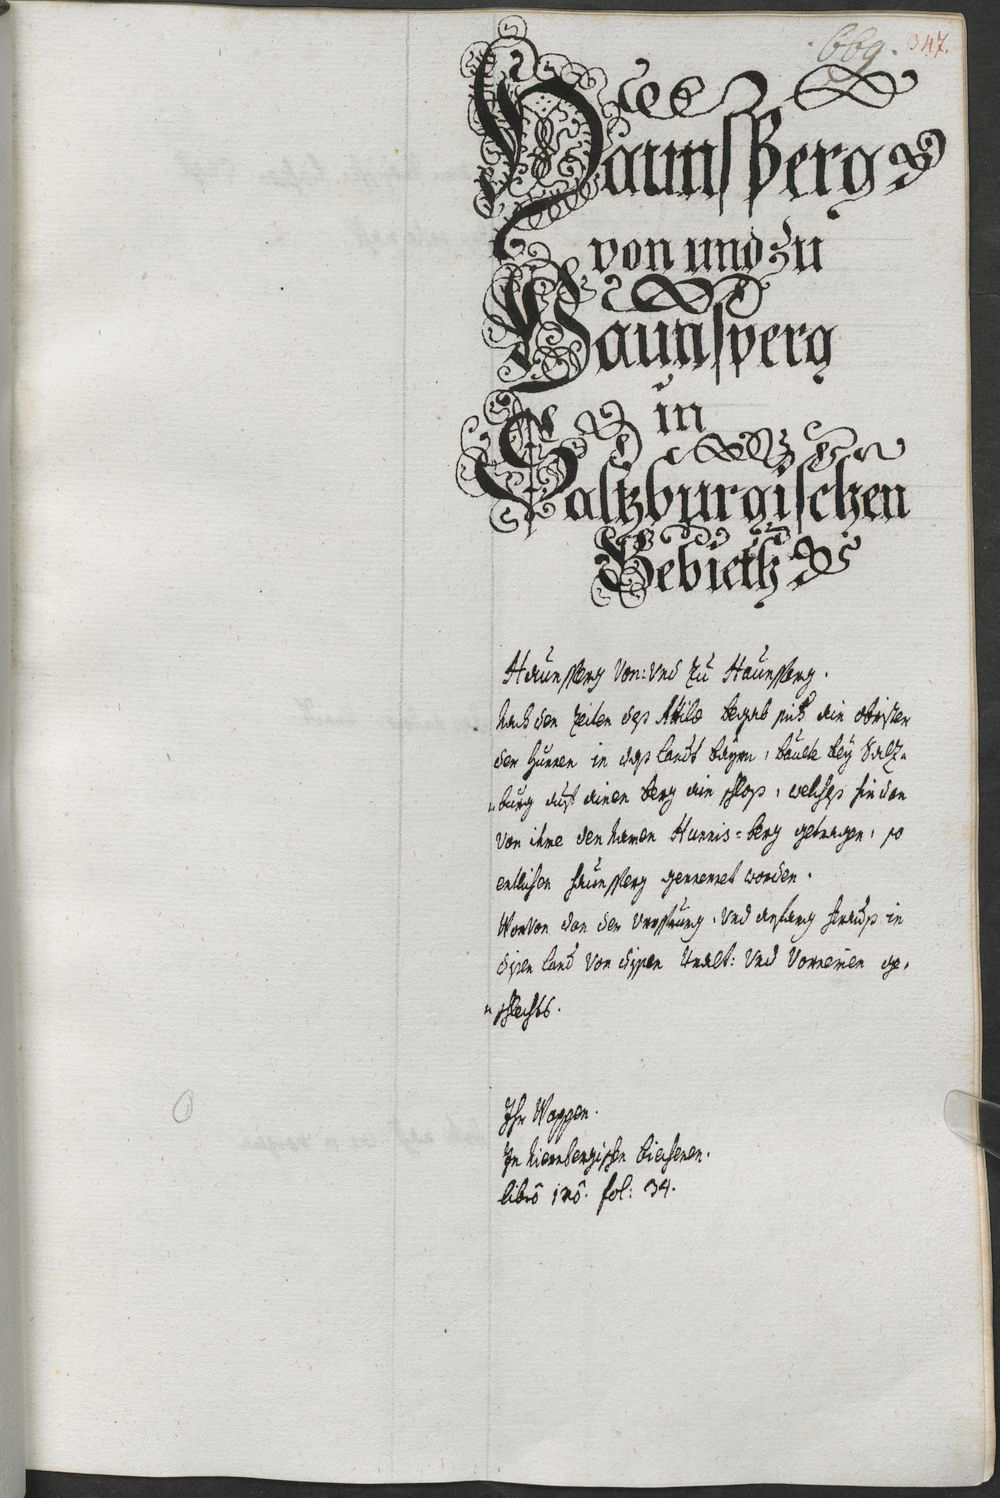 669. 347.
HaunsPerg
von und zu
Haunsperg
in
Saltzburgischen
Gebieth
Haunsperg Von: Vnd zu Haunsperg.
Nach den Zeiten deß Attila begab sich ein obrister
der Hunnen in daß landt Bayrn, baute bey Salz-
burg auf einen berg ein schloß, welches hindan
Von ihme den Namen Hunnis=berg getragen, so
entlichen Haunsperg genennet worden.
Worvon dan der Vrsprung, Vnd anfang herauß in
disen land Von disen Uralt: Vnd Vornemen ge-
schlechts.
Ihr Wappen.
In Niernbergischen biecheren.
libro imo. fol: 34.